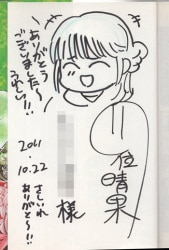 ありがとう
ございました〜
うれしい!!
位晴果
様
2011.
10.22
さしいれ
ありがと〜!!